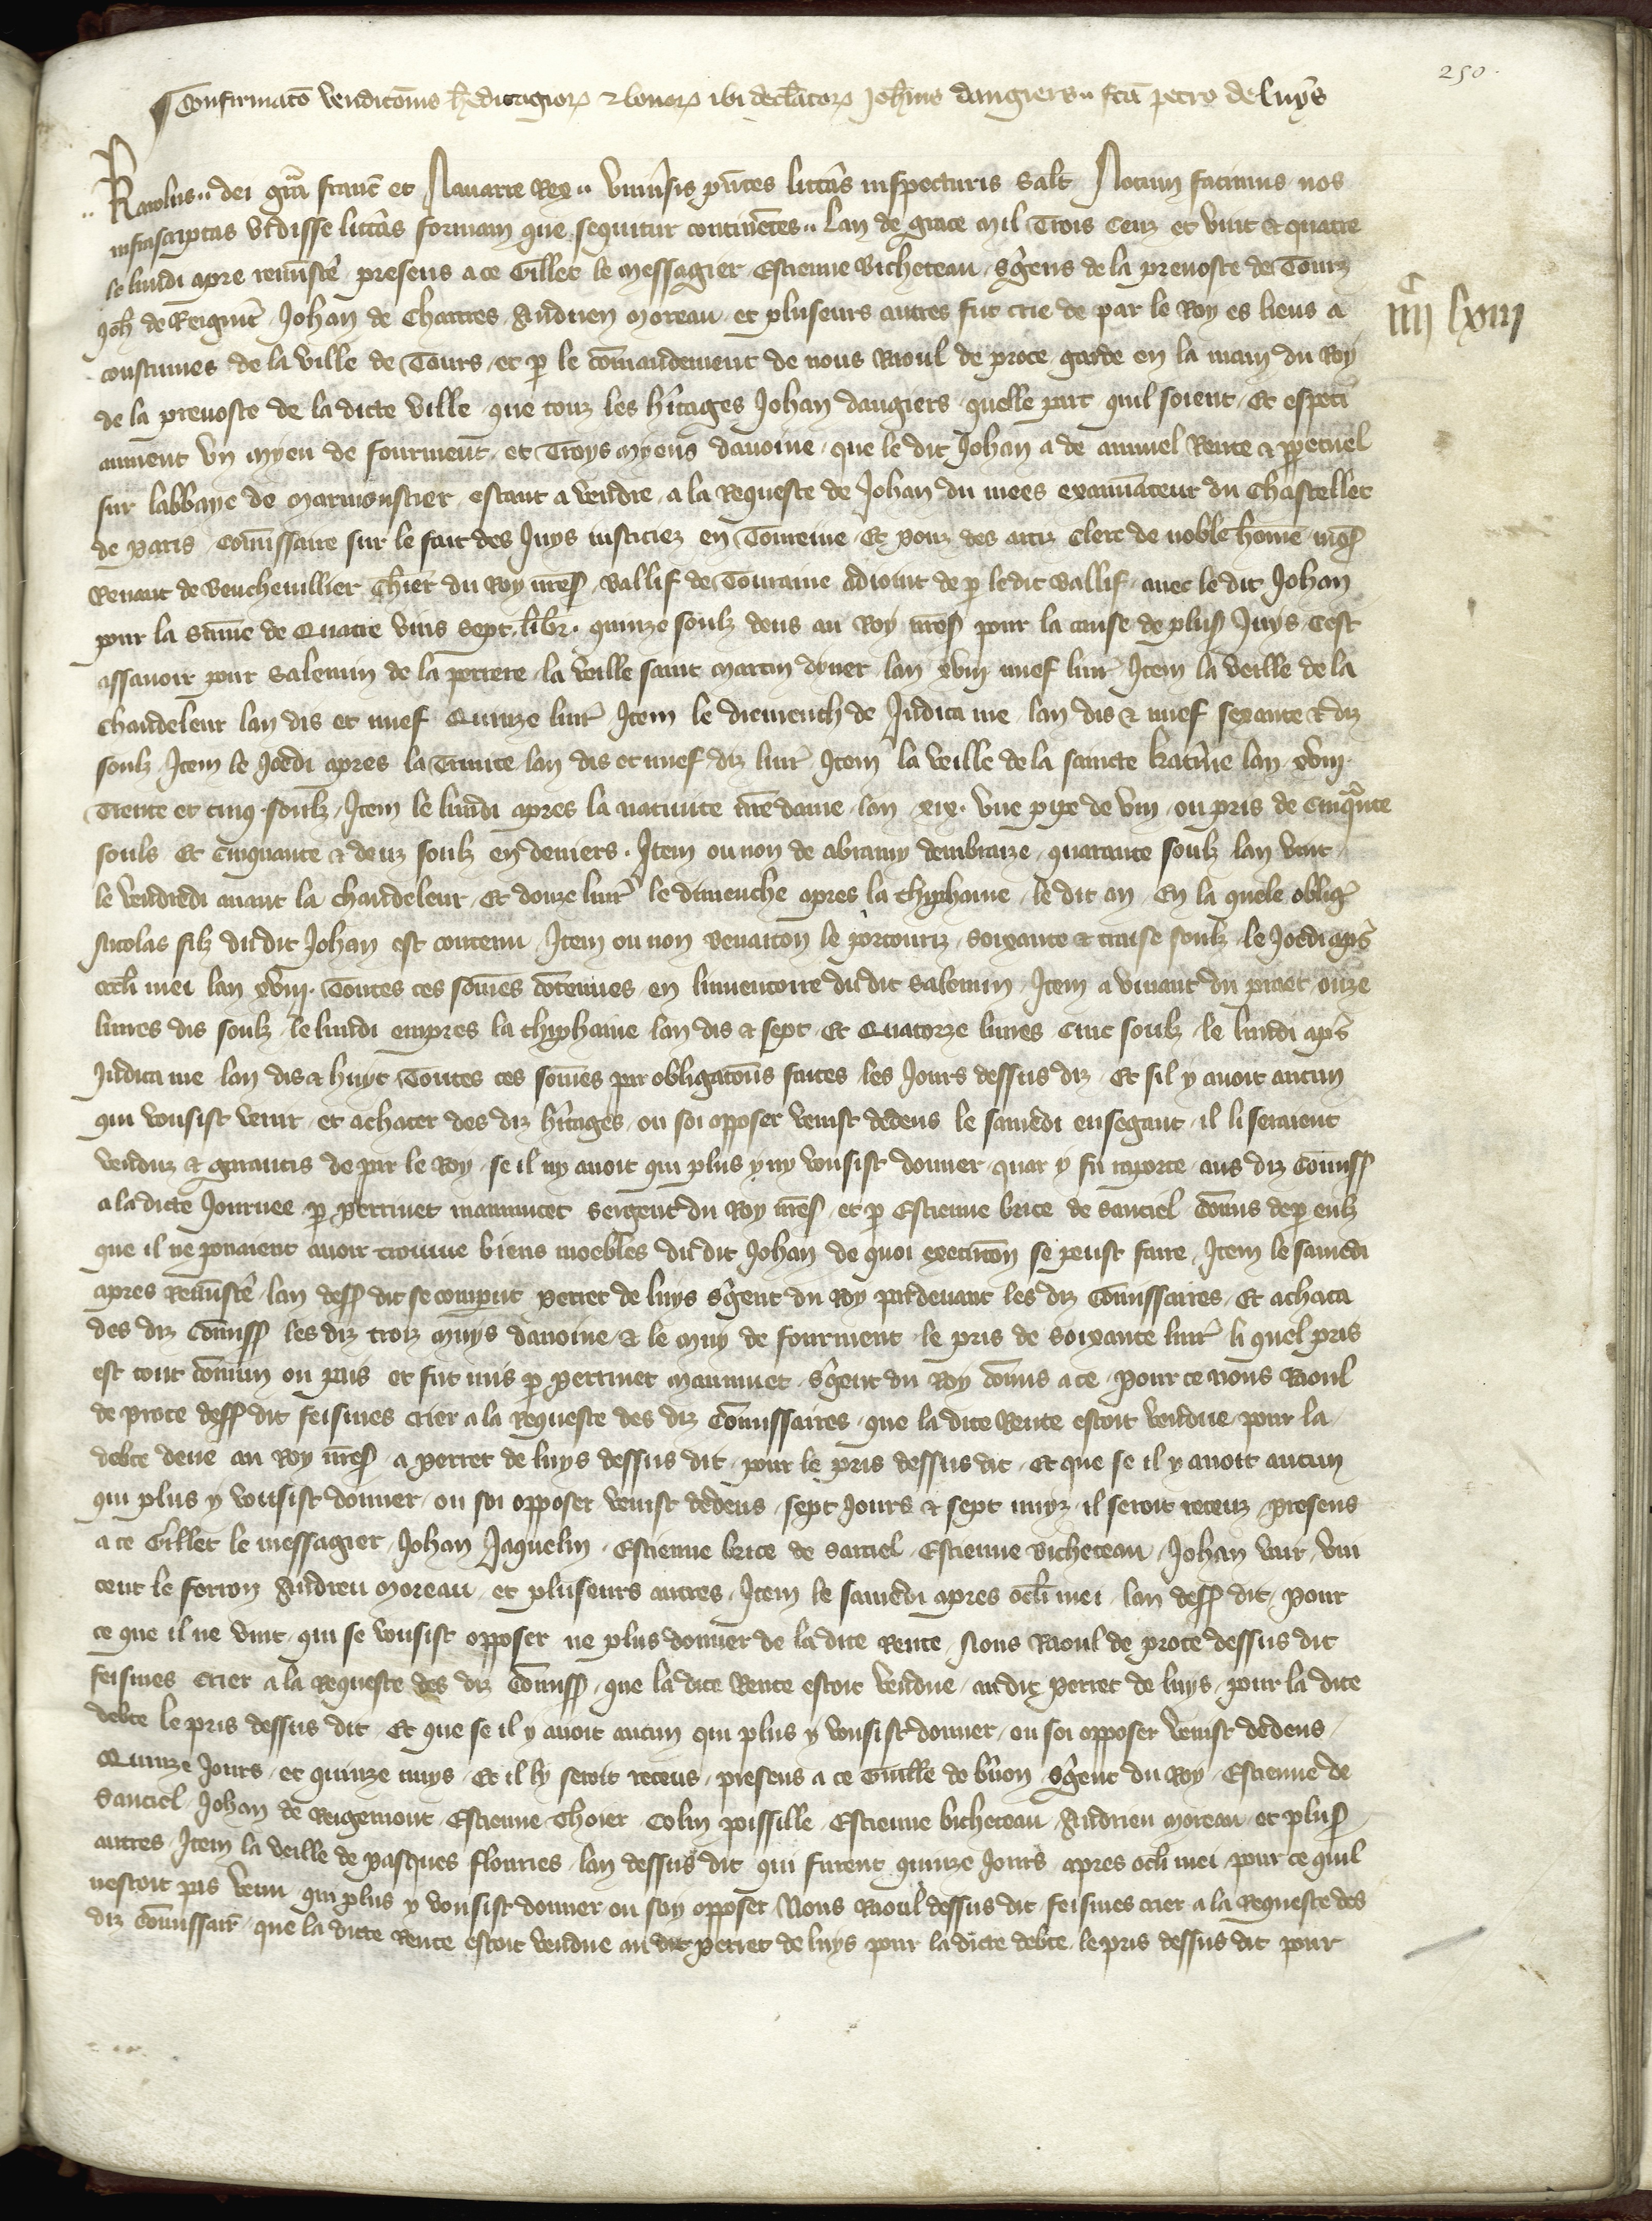 250.
Confirmato venditonis hereditagiorum et bonorum ibi declaratorum Johannis dangiers fca petro de Luys
Karolus dei gra franc et Navarre Rex Univsis pntes litteras inspecturis Salt Notum facimus nos
infrascriptas vidisse litteras formam que sequitur continentes Lan de grace mil Trois Cenz et vint et quatre
le lundi apre reministe presens a ce Gillet le messagier Estienne Bicheteau sgens de la prevoste de Tourz
Joh de Johan de Chartres Andrieu Moreau et pluseurs autres fut crie de par le Roy es lieus a
iiiixx lxiiii
coustumes de la ville de Tours et p le comandement de nous Raoul de proce garde en la main du Roy
de la prevoste de la dicte ville que touz les hitages Johan dangiers quelle part quil soient Et especi
aument un myeu de fourment et Troys myeus davoine que le dit Johan a de annuel Rente et ppetuel
sur labbaye de Marmonstier estant a vendre a la Requeste de Johan du mees examinateur du Chastellet
de Paris Comissaire sur le fait des Juys iusticiez en Toureine Et Ponz des arciz Clerc de noble home mgr
Renaut de Chlier du Roy nres Ballif de Touraine adioint de p ledit Ballif avec le dit Johan
pour la Some de Quatre vins sept libr quinze soulz deus au Roy nres pour la cause de plus Juys Cest
assavoir pour Salemin de la perrere la veille saint Martin dyver lan xviii nuef liur Item la veille de la
Chandeleur lan dis et nuef Quinze liur Item le diemench de Judica me lan dis et nuef sexante et diz
soulz Item le Joedi apres la Trinite lan dis et nuef diz liur Item la veille de la saincte katine lan xviii
Trente et cinq soulz Item le lundi apres la nativite nre dame lan xix une pipe de vin ou pris de Cinquante
souls Et Cinquante et deuz soulz en deniers Item ou non de abramy dembraize quarante soulz lan vint
le vendredi avant la chandeleur Et douze liur le dimenche apres la thyphaine le dit an En la quele oblig
Nicolas filz dudit Johan est contenu Item ou non le soixante et traise soulz le Joedi aps
ocli mei lan xviii Toutes ces somes contenues en linventoire du dit Salemin Item a vivant du onze
livres dis soulz le lundi empres la thyphaine lan dis et sept Et Quatorze livres cinc soulz le lundi aps
Judica me lan dis et huyt Toutes ces somes par obligatons faites les Jours dessus diz Et sil y avoit aucun
qui vousist venir et achater des diz hitages ou soi opposer venist dedens le samedi ensegant il li seraient
venduz et garantis de par le Roy se il ny avoit qui plus y ny vousist donner quar y fu raporte aus diz Comiss
a la dicte Journee p Perrinet maumucet sergent du Roy nres et p Estienne brice de Sanciel comis de p eulz
que il ne povaient avoir trouve biens moebles du dit Johan de quoi execucon se peust faire Item le samedi
apres Reministe lan dess dit se comparut Perret de luys sgent du Roy pardevant les diz Comissaires Et achata
des diz comiss les diz troiz muys davoine et le muy de fourment le pris de soixante liur li quel pris
est tout comun ou pais et fut mis p Perrinet Maumucet sgent du Roy comis a ce Pour ce nous Raoul
de proce dess dit feismes crier a la Requeste des diz Comissaires que la dite Rente estoit vendue pour la
debte deue au Roy nres a Perret de luys dessus dit pour le pris dessus dit Et que se il y avoit aucun
qui plus y vousist donner ou soi opposer venist dedens sept Jours et sept nuyz il seroit receuz Presens
a ce Gillet le messagier Johan Jaquelin Estienne brice de Sanciel Estienne Bicheteau Johan vair Vin
cent le ferron Andrieu Moreau et pluseurs autres Item le samedi apres ocli mei lan dess dit Pour
ce que il ne vint qui se vousist opposer ne plus donner de la dite Rente Nous Raoul de proce dessus dit
feismes crier a la Requeste des diz comiss que la dite Rente estoit vendue audit Perret de luys pour la dite
debte le pris dessus dit Et que se il y avoit aucun qui plus y vousist donner ou soi opposer venist dedens
Quinze Jours et quinze nuys Et il ly seroit receus presens a ce Guille de bron sgent du Roy Estienne de
Sanciel Johan de Reigemont Estienne Thoier Colin poissille Estienne bicheteau Andrieu Moreau et plus
autres Item la veille de pasques flouries lan dessus dit qui furent quinze Jours apres ocli mei pour ce quil
nestoit pas venu qui plus y vousist donner ou soy opposer Nous Raoul dessus dit feismes crier a la Requeste des
diz comissair que la dicte Rente estoit vendue au dit Perret de luys pour la dicte debte le pris dessus dit pour